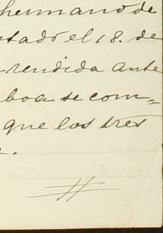 hermano de
stado el 18. de
rendida ante
boa se com=
que los tres